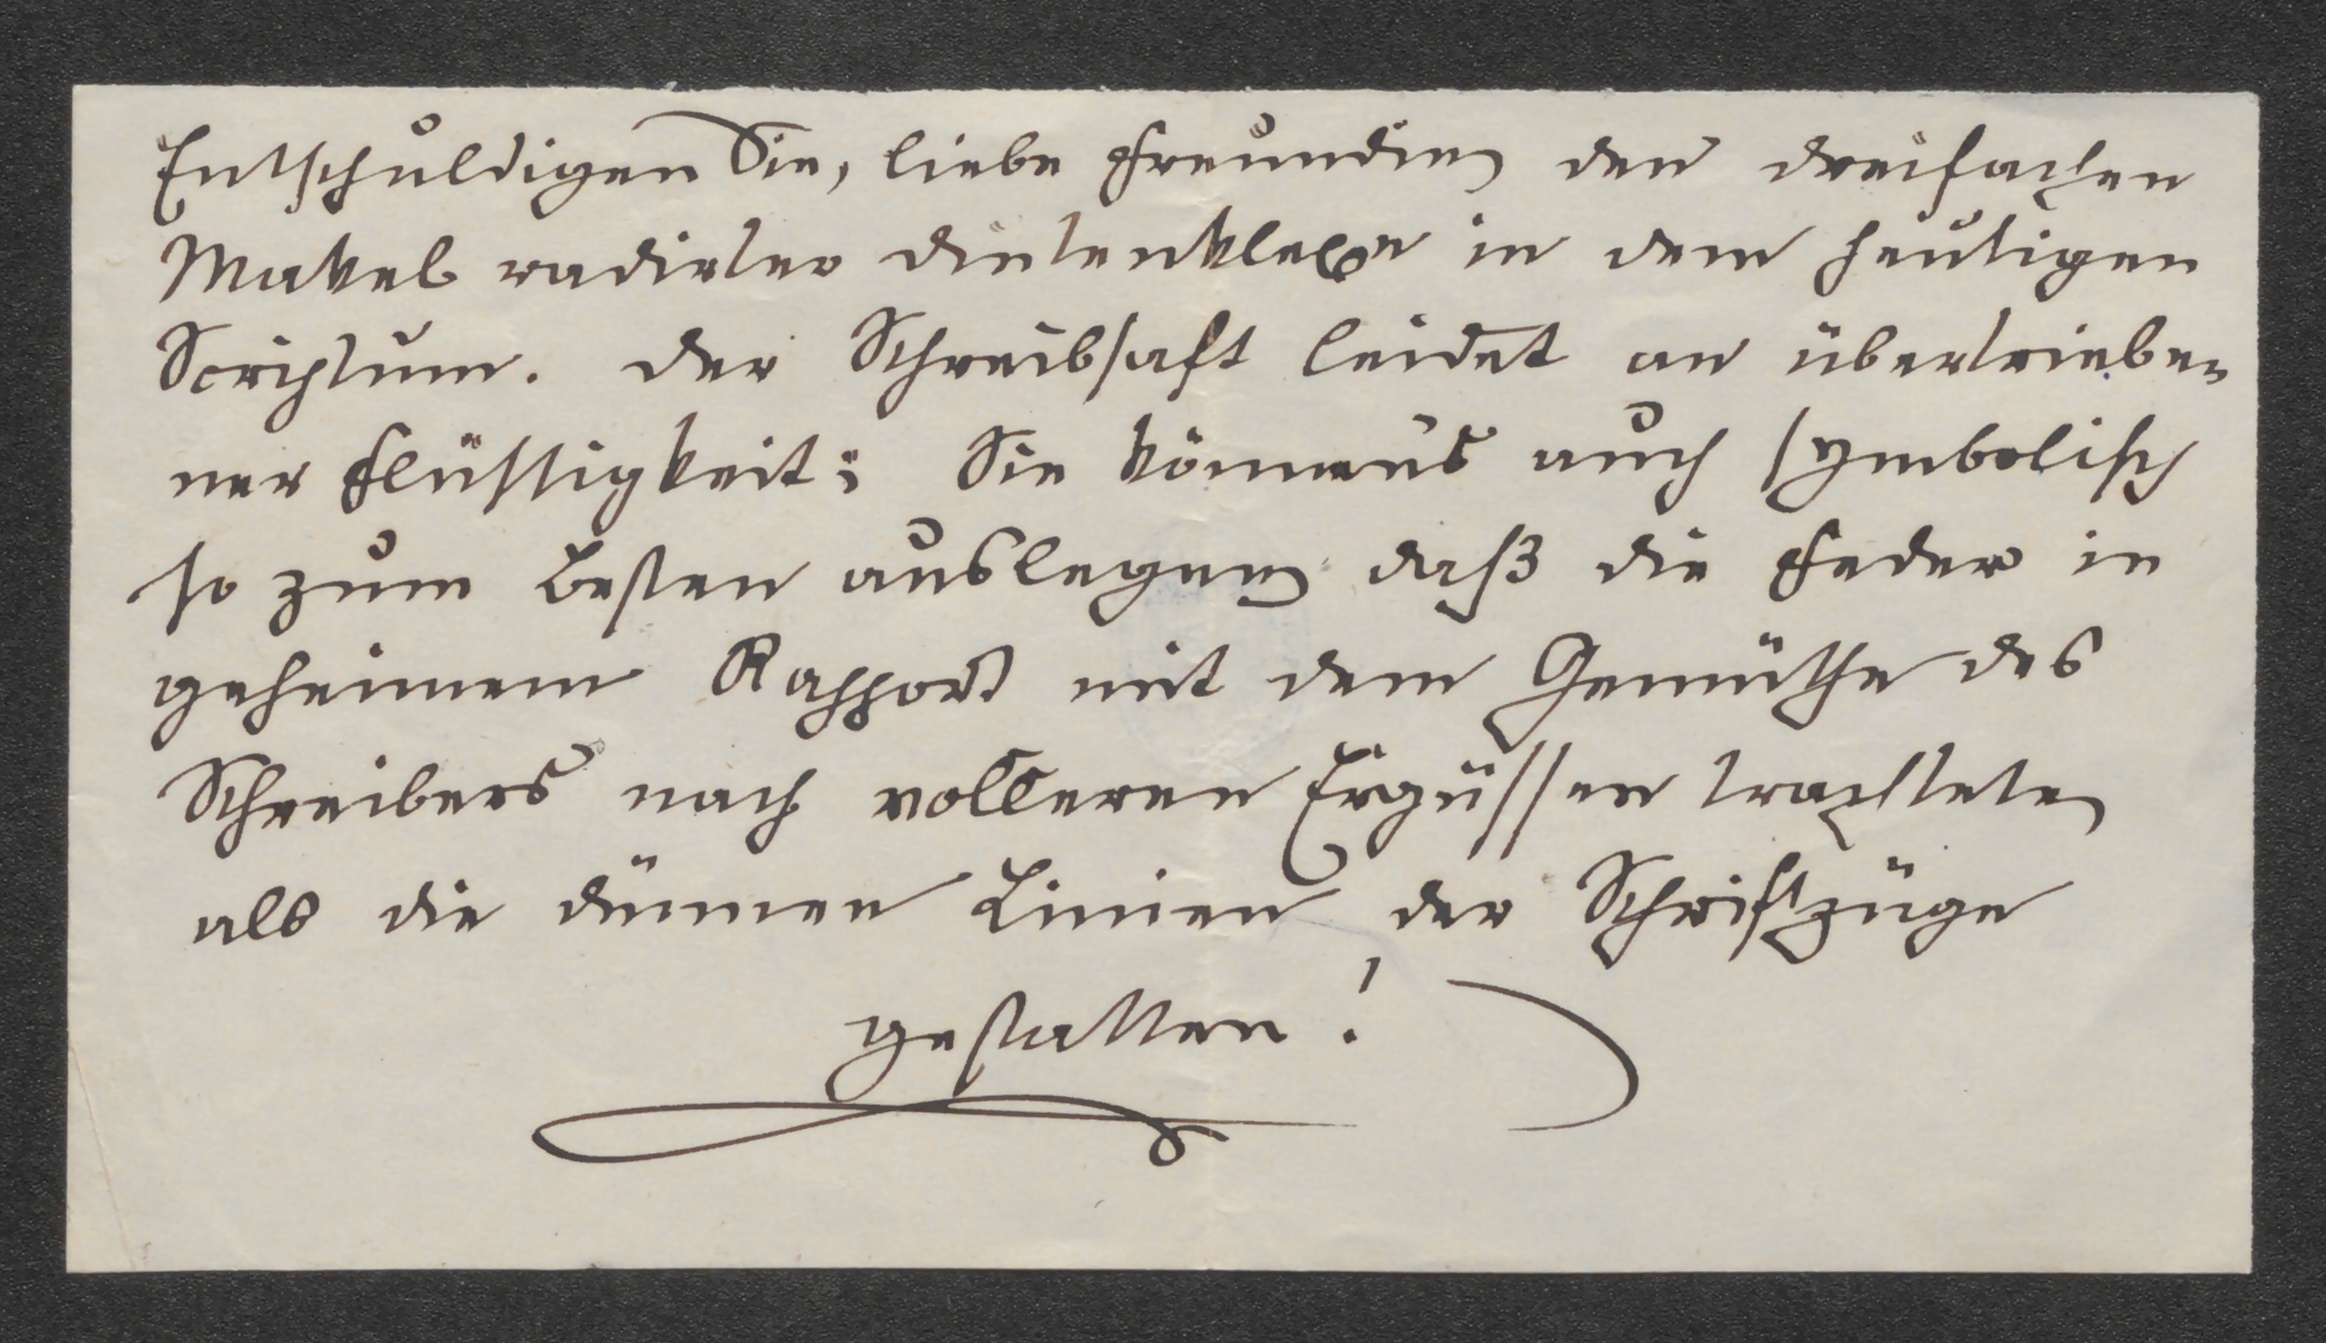 Entschuldigen Sie, liebe Freundin den dreifachen
Makel radirter Dintenklexe in dem heutigen
Scriptum. Der Schreibsaft leidet an übertriebe-
ner Flüssigkeit; Sie könnens auch symbolisch
so zum Besten auslegen daß die Feder in
geheimem Rapport mit dem Gemüthe des
Schreibers nach volleren Ergüssen trachtete,
als die dünnen Linien der Schriftzüge
gestatten!